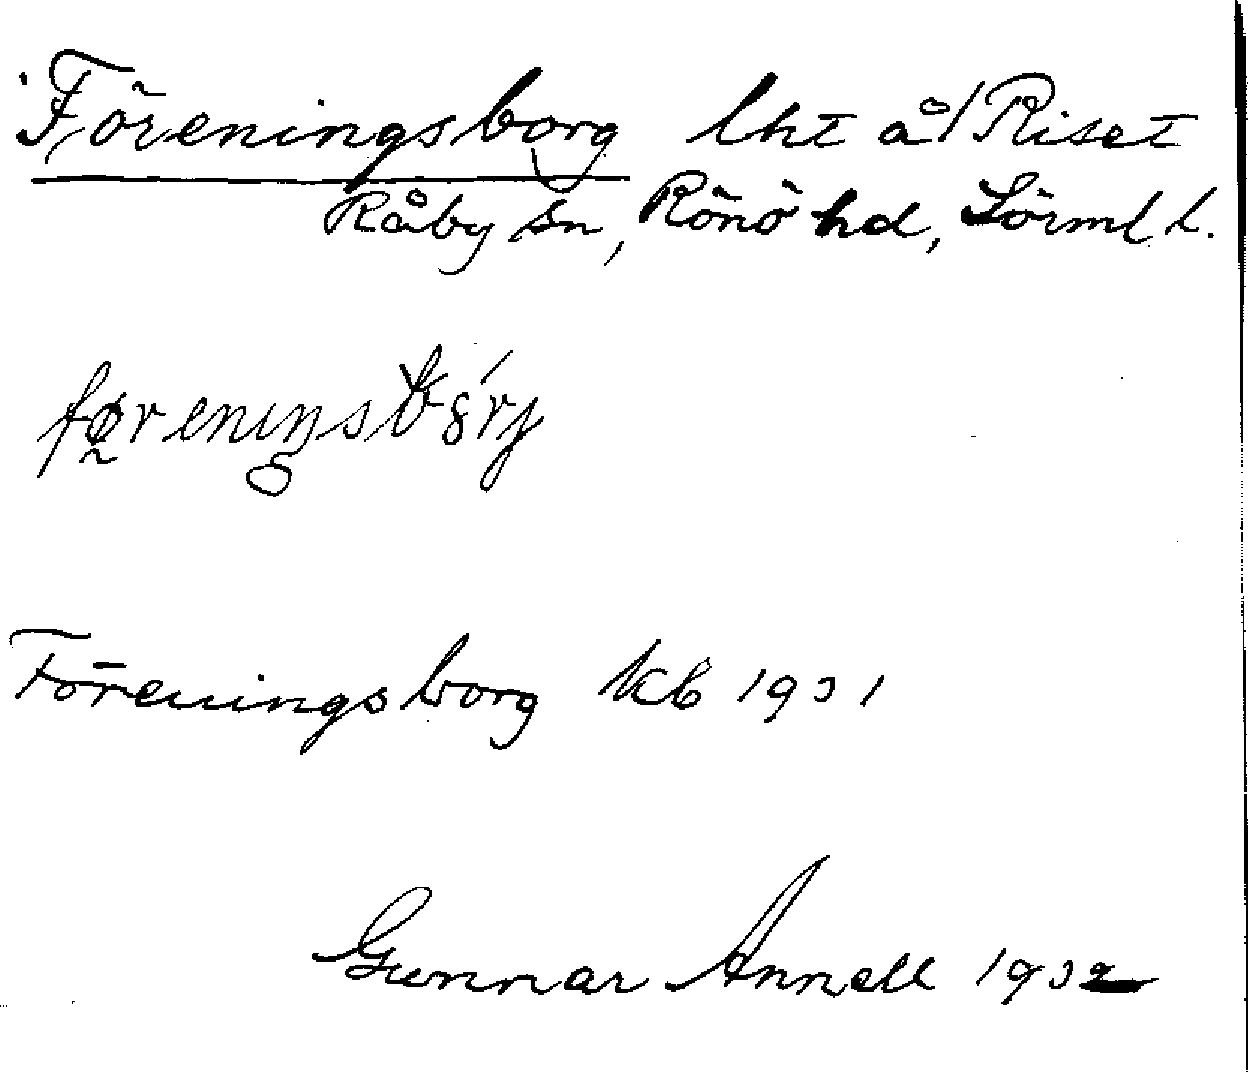 Föreningsborg lht å/Riset
Råby sn, Rönö hd, Sörml. l.
Föreningsborg kb 1931
Gunnar Annell 1932